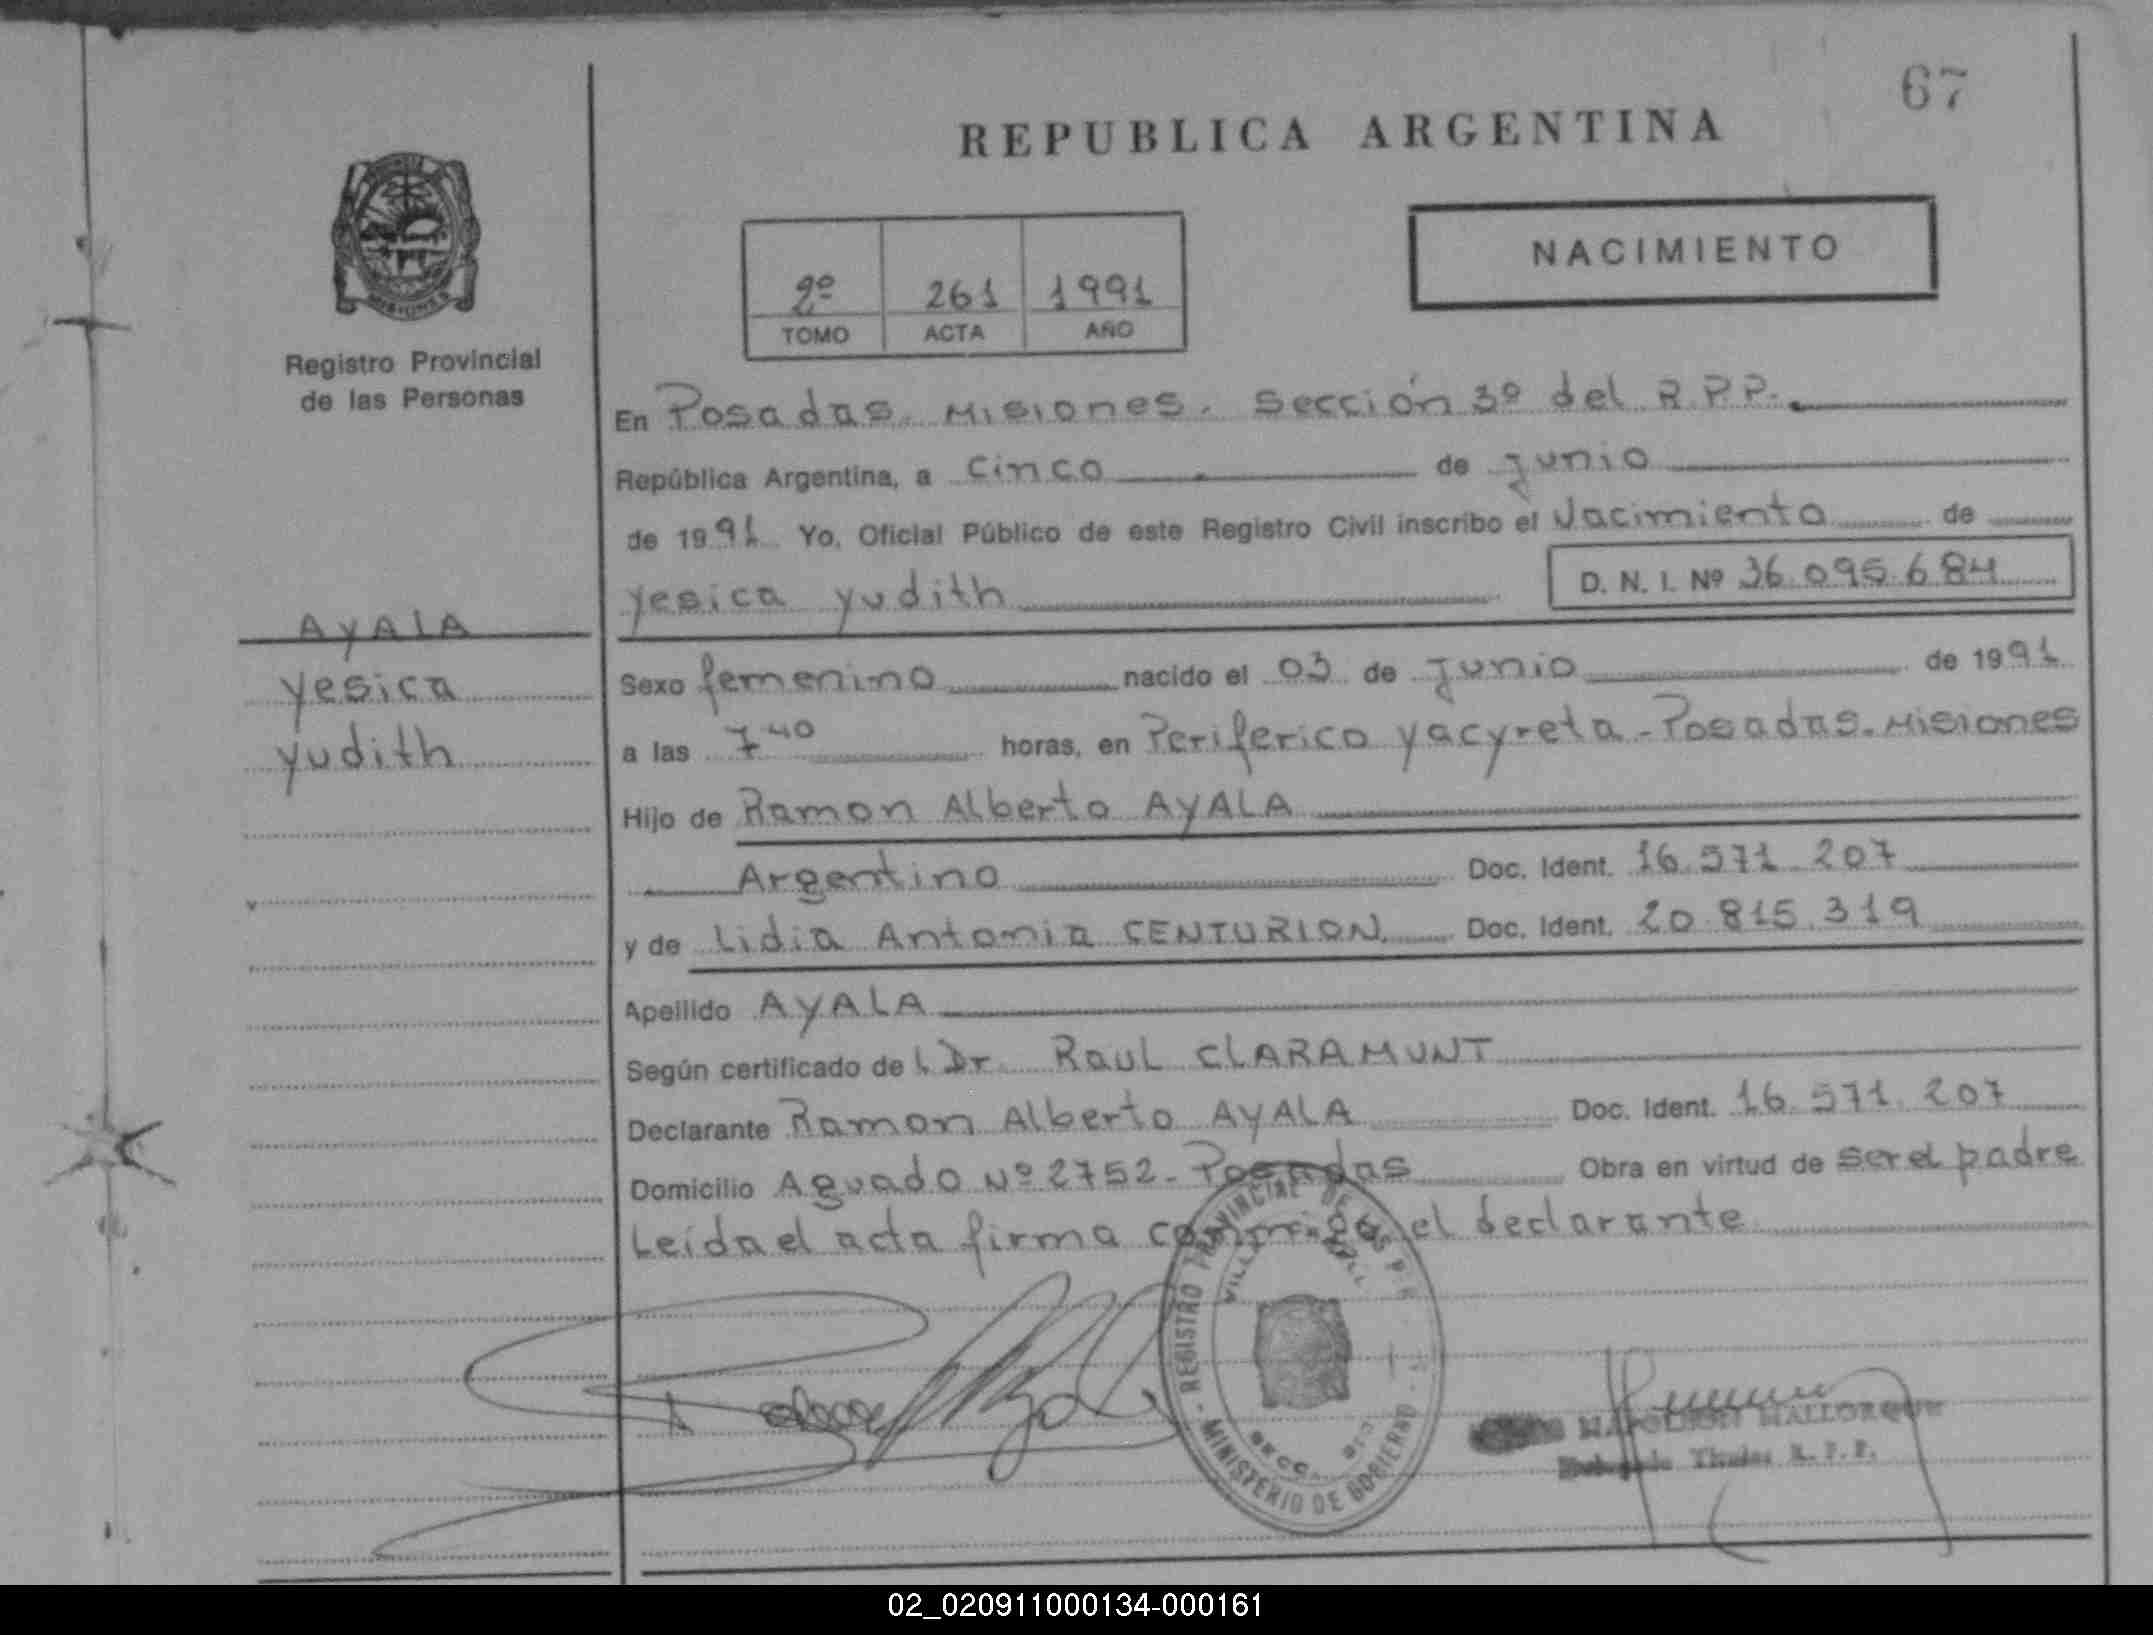 67
REPUBLICA ARGENTINA
NACIMIENTO
2º 261 1991
TOMO ACTA AÑO
Registro Provincial
de las Personas
En Posadas. Misiones. Sección 3º del R.P.P.
República Argentina, a cinco de junio
de 1991 Yo, Oficial Público de este Registro Civil inscribo el Nacimiento de
yesica yudith D. N. I. Nº 36.095.684
AYALA
yesica
yudith
Sexo femenino nacido el 03 de junio de 1991
a las 7 40 horas, en Periferico yacyreta - Posadas. Misiones
Hijo de Ramon Alberto AYALA
Argentino Doc. Ident. 16.571.207
y de Lidia Antonia CENTURION. Doc. Ident. 20.815.319
Apellido AYALA
Según certificado de l Dr. Raul CLARAMUNT
Declarante Ramon Alberto AYALA Doc. Ident. 16.571.207
Domicilio Aguado Nº 2752 - Posadas Obra en virtud de ser el padre
Leída el acta firma conmigo el declarante
REGISTRO PROVINCIAL DE LAS P
MINISTERIO DE GOBIERNO
NAPOLEON MALLORQUIN
Titular R. P. P.
02_020911000134-000161